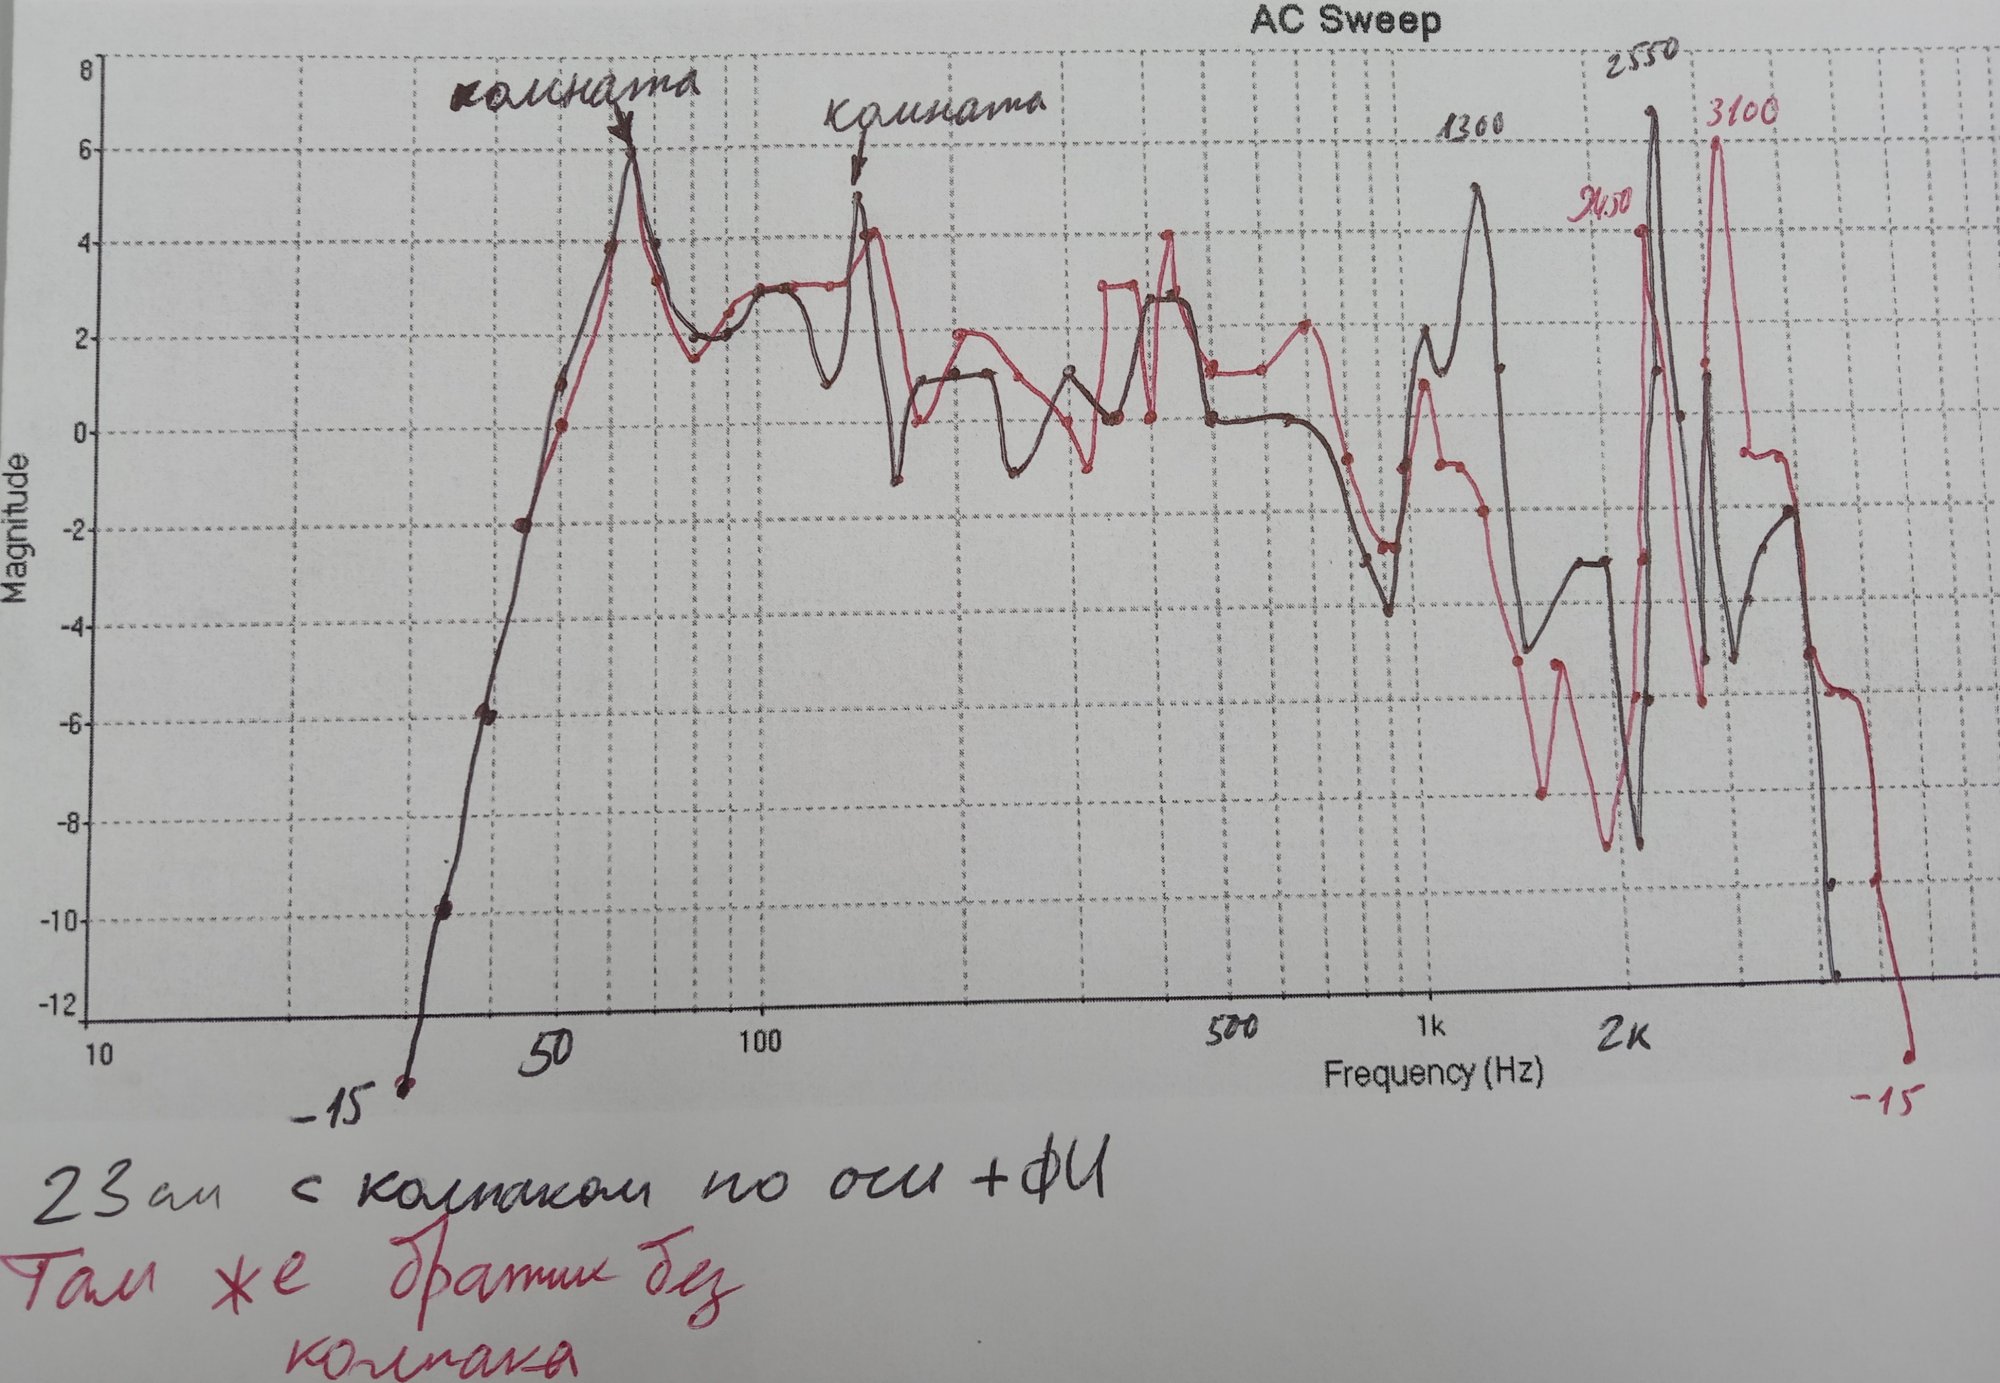 AC Sweep
2550
комната
комната
1300
3100
2450
8
6
4
2
0
-2
-4
-6
-8
-10
-12
Magnitude
10
50
100
500
1k
2к
Frequency (Hz)
-15
-15
23см с колпаком по оси + ФИ
Там же братик без
колпака